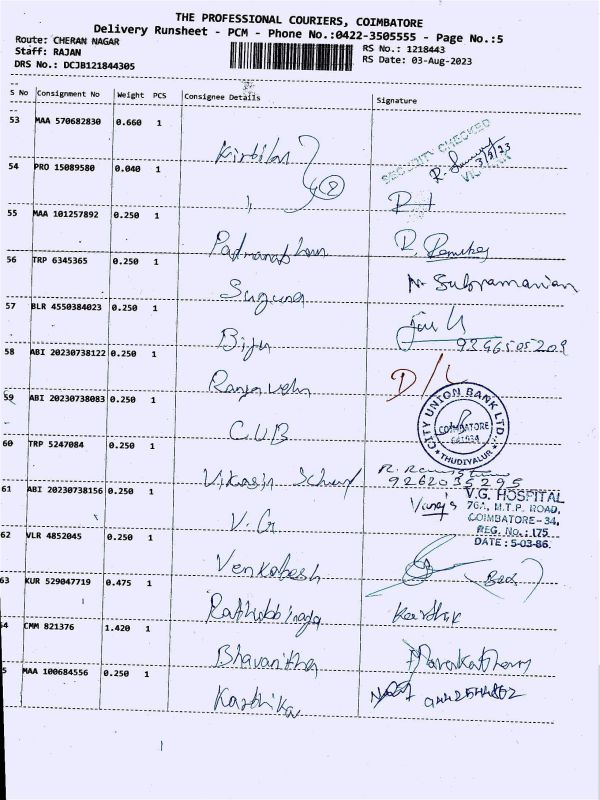 THE PROFESSIONAL COURIERS, COIMBATORE
Delivery Runsheet - PCM - Phone No.:0422-3505555 - Page No.:5
Route: CHERAN NAGAR
RS No.: 1218443
Staff: RAJAN
RS Date: 03-Aug-2023
DRS No.: DCJB121844305
S No Consignment No Weight PCS Consignee Details Signature
53 MAA 570682830 0.660 1
SECURITY CHECKED
3/8/23
54 PRO 15089580 0.040 1
2
55 MAA 101257892 0.250 1
Padmanabhan
56 TRP 6345365 0.250 1
Suguna N. Subramanian
57 BLR 4550384023 0.250 1
Biju
58 ABI 20230738122 0.250 1
D/L
59 ABI 20230738083 0.250 1
C.U.B
CITY UNION BANK LTD.
COIMBATORE
641034
* THUDIYALUR *
60 TRP 5247084 0.250 1
9262035295
61 ABI 20230738156 0.250 1
V.G
V.G. HOSPITAL
76A, M.T.P. ROAD,
COIMBATORE-34,
REG. No.: 175
DATE: 5-03-86.
62 VLR 4852045 0.250 1
Venkatesh
63 KUR 529047719 0.475 1
Karthik
64 CMM 821376 1.420 1
Bhavanitha
5 MAA 100684556 0.250 1
Karthika